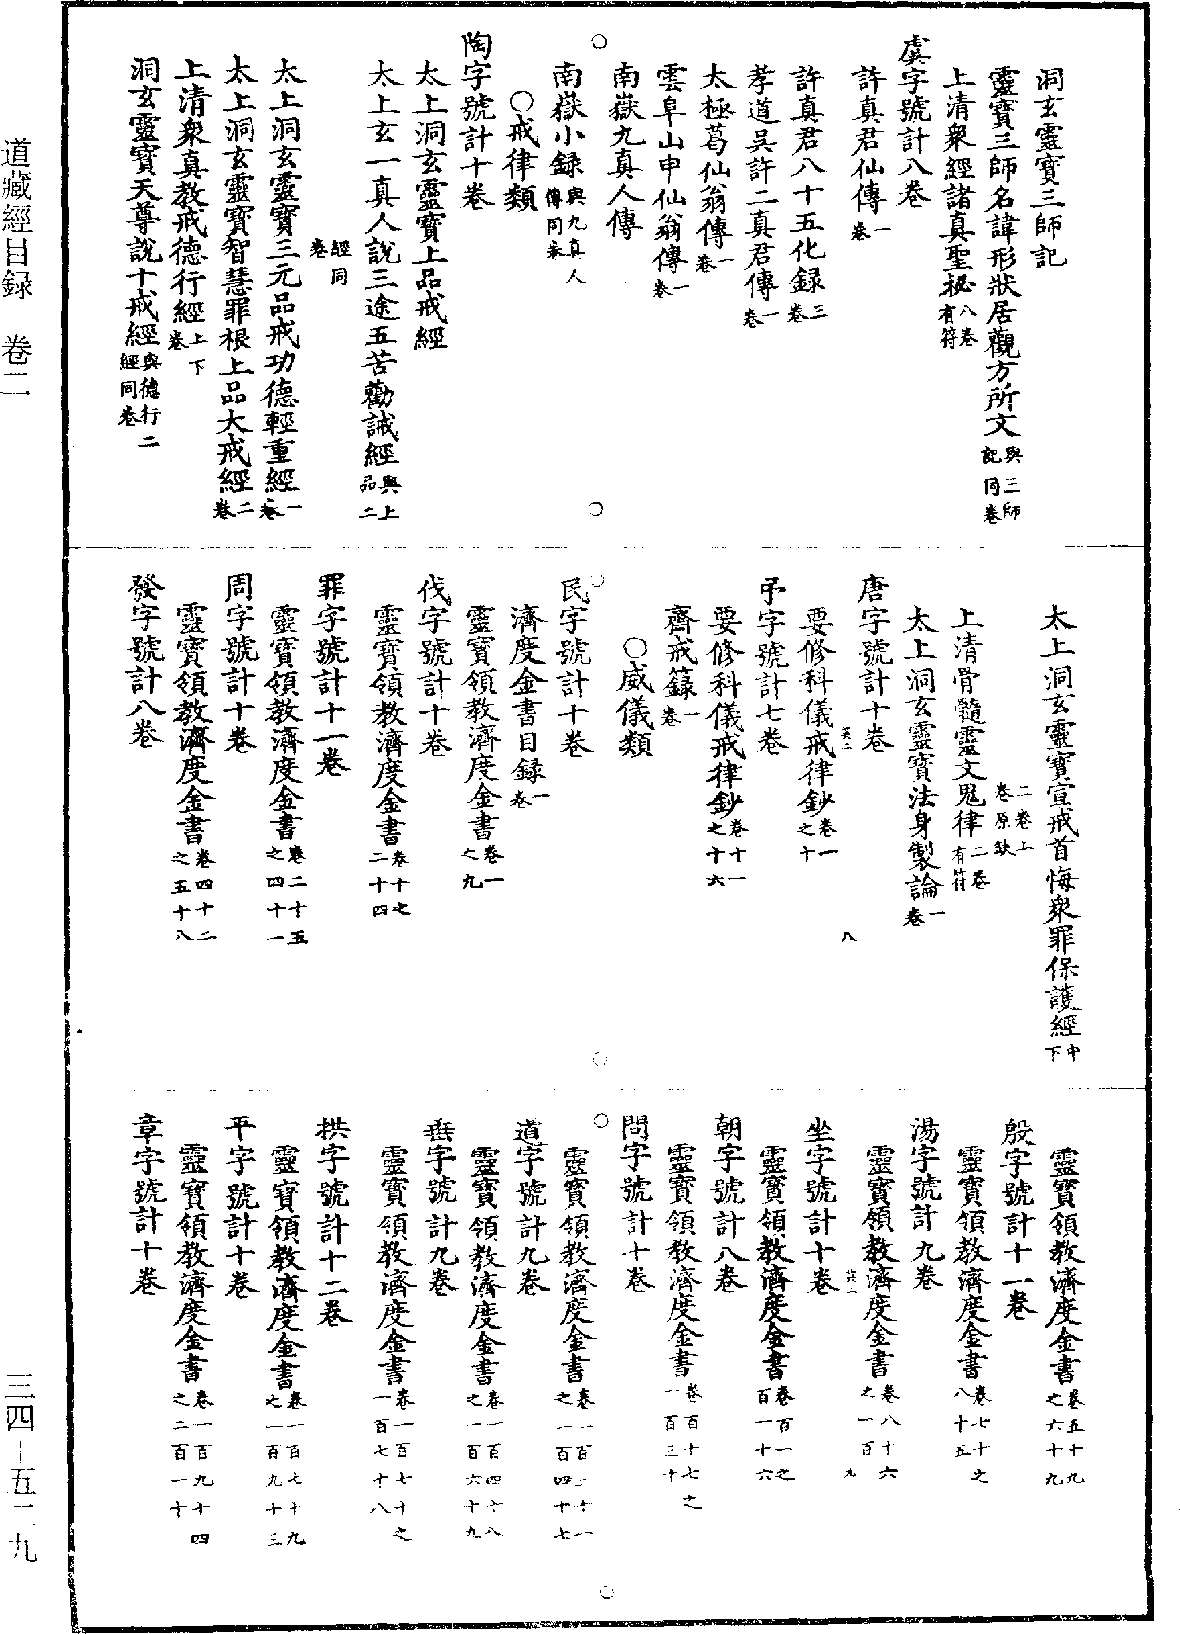 洞玄靈寶三師記
靈寶三師名諱形狀居觀方所文與三師記同卷
上清衆經諸真聖祕八卷有符
虞字號計八卷
許真君仙傳一卷
許真君八十五化録三卷
孝道吳許二真君傳一卷
太極葛仙翁傳一卷
雲阜山申仙翁傳一卷
南嶽九真人傳
南嶽小録與九真人傳同卷
○戒律類
陶字號計十卷
太上洞玄靈寶上品戒經
太上玄一真人說三途五苦勸誡經與上品二
經同卷
太上洞玄靈寶三元品戒功德輕重經一卷
太上洞玄靈寶智慧罪根上品大戒經二卷
上清衆真教戒德行經上下卷
洞玄靈寶天尊說十戒經與德行二經同卷
太上洞玄靈寶宣戒首悔衆罪保護經中下
二卷上卷原缺
上清骨髓靈文鬼律二卷有符
太上洞玄靈寶法身製論一卷
唐字號計十卷
八
要修科儀戒律鈔卷一之十
弔字號計七卷
要修科儀戒律鈔卷十一之十六
齋戒籙一卷
○威儀類
民字號計十卷
濟度金書目録一卷
靈寶領教濟度金書卷一之九
伐字號計十卷
靈寶領教濟度金書卷十之二十四
罪字號計十一卷
靈寶領教濟度金書卷二十五之四十一
周字號計十卷
靈寶領教濟度金書卷四十二之五十八
發字號計八卷
靈寶領教濟度金書卷五十九之六十九
殷字號計十一卷
靈寶領教濟度金書卷七十之八十五
湯字號計九卷
靈寶領教濟度金書卷八十六之一百
九
坐字號計十卷
靈寶領教濟度金書卷百一之百一十六
朝字號計八卷
靈寶領教濟度金書卷百十七之一百三十
問字號計十卷
靈寶領教濟度金書卷一百三十一之一百四十七
道字號計九卷
靈寶領教濟度金書卷一百四十八之一百六十九
垂字號計九卷
靈寶領教濟度金書卷一百七十之一百七十八
拱字號計十二卷
靈寶領教濟度金書卷一百七十九之一百九十三
平字號計十卷
靈寶領教濟度金書卷一百九十四之二百一十
章字號計十卷
道藏經目録 卷二
三四–五二九